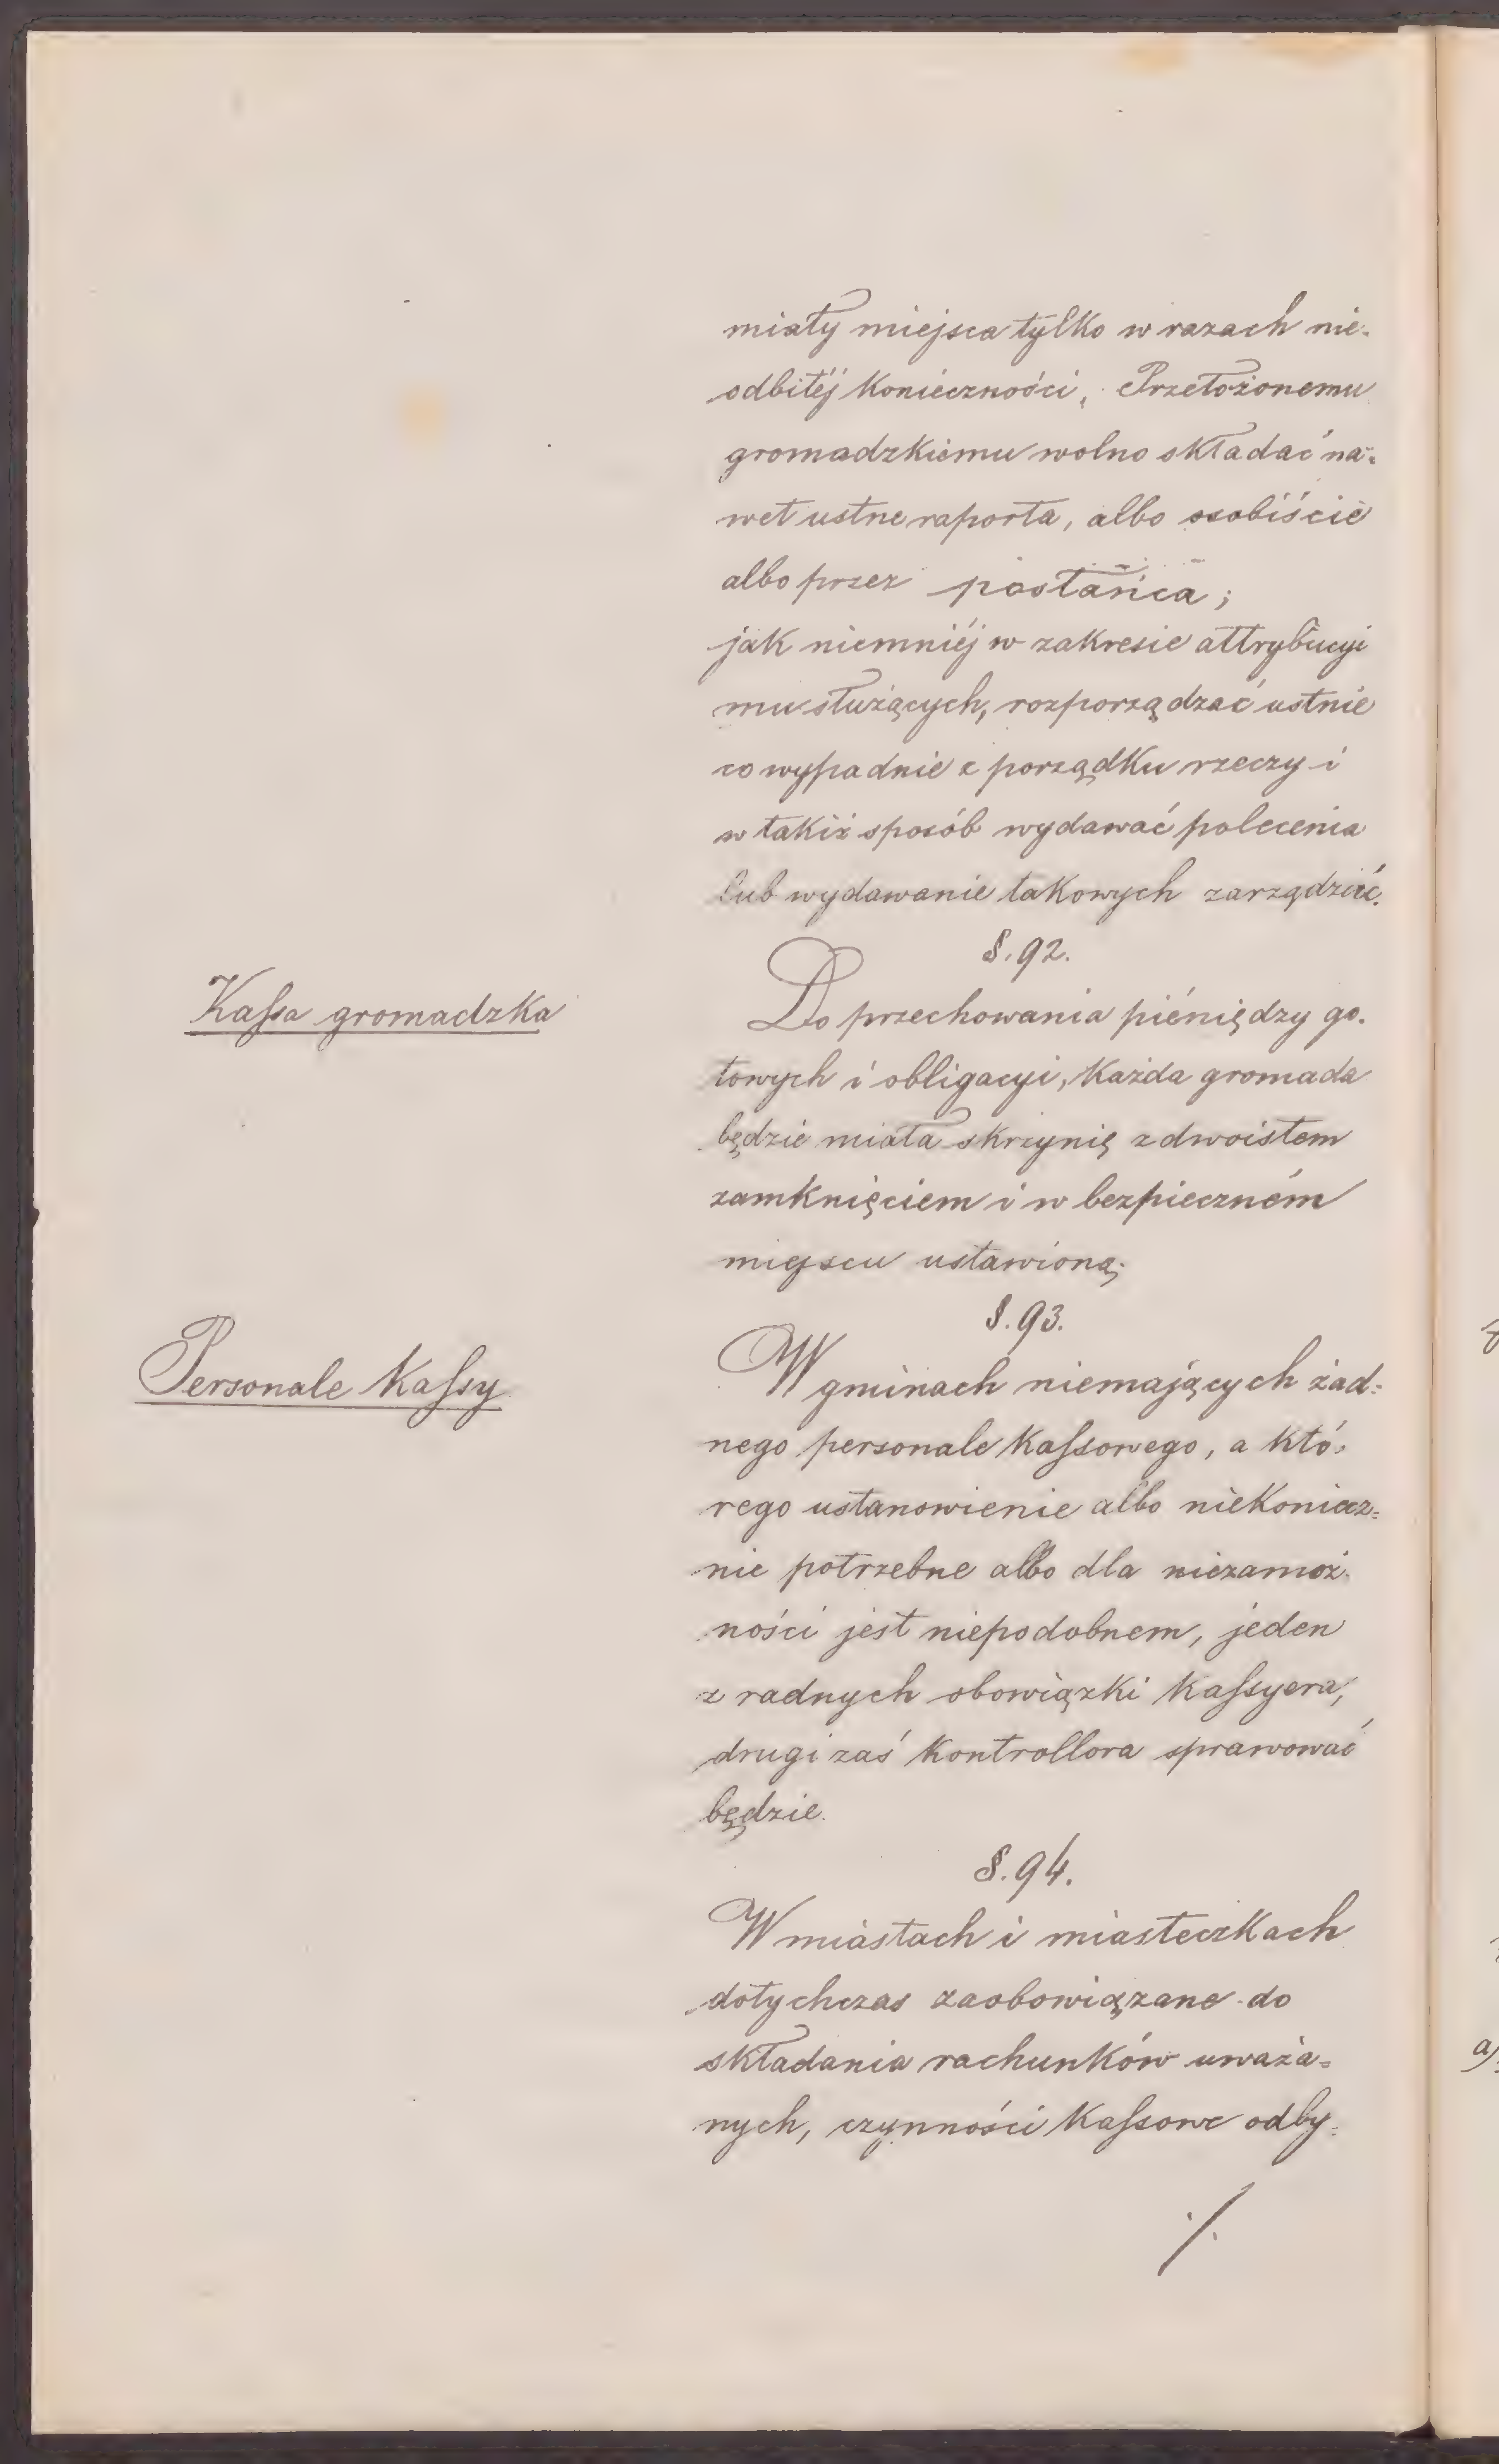 miały miejsca tylko w razach nie-
odbitéj konieczności, Przełożonemu
gromadzkiemu wolno składać na-
wet ustne raporta, albo osobiście
albo przez posłańca;
jak niemniéj w zakresie attrybucyi
mu służących, rozporządzać ustnie
co wypadnie z porządku rzeczy i
w takiż sposób wydawać polecenia
lub wydawanie takowych zarządzić.
§. 92.
Kaſsa gromadzka
Do przechowania pieniędzy go-
towych i obligacyi, każda gromada
będzie miała skrzynię z dwoistem
zamknięciem i w bezpieczném
miejscu ustawioną.
§. 93.
Personale Kaſsy
W gminach niemających żad=
nego personale kaſsowego, a któ-
rego ustanowienie albo niekoniecz=
nie potrzebne albo dla niezamoż-
ności jest niepodobnem, jeden
z radnych obowiązki kaſsyera,
drugi zaś kontrollora sprawować
będzie.
§. 94.
W miastach i miasteczkach
dotychczas zaobowiązane do
składania rachunków uważa=
nych, czynności kaſsowe odby=
./.